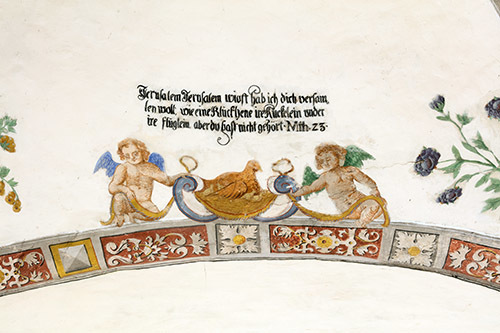 Jerusalem Jerusalem wioft hab ich dich versam
len woll, wie eine Kluckhene ire Kucklein vnder
ire fluglein, aber du hast nicht gehört · Mtth · 23 ·